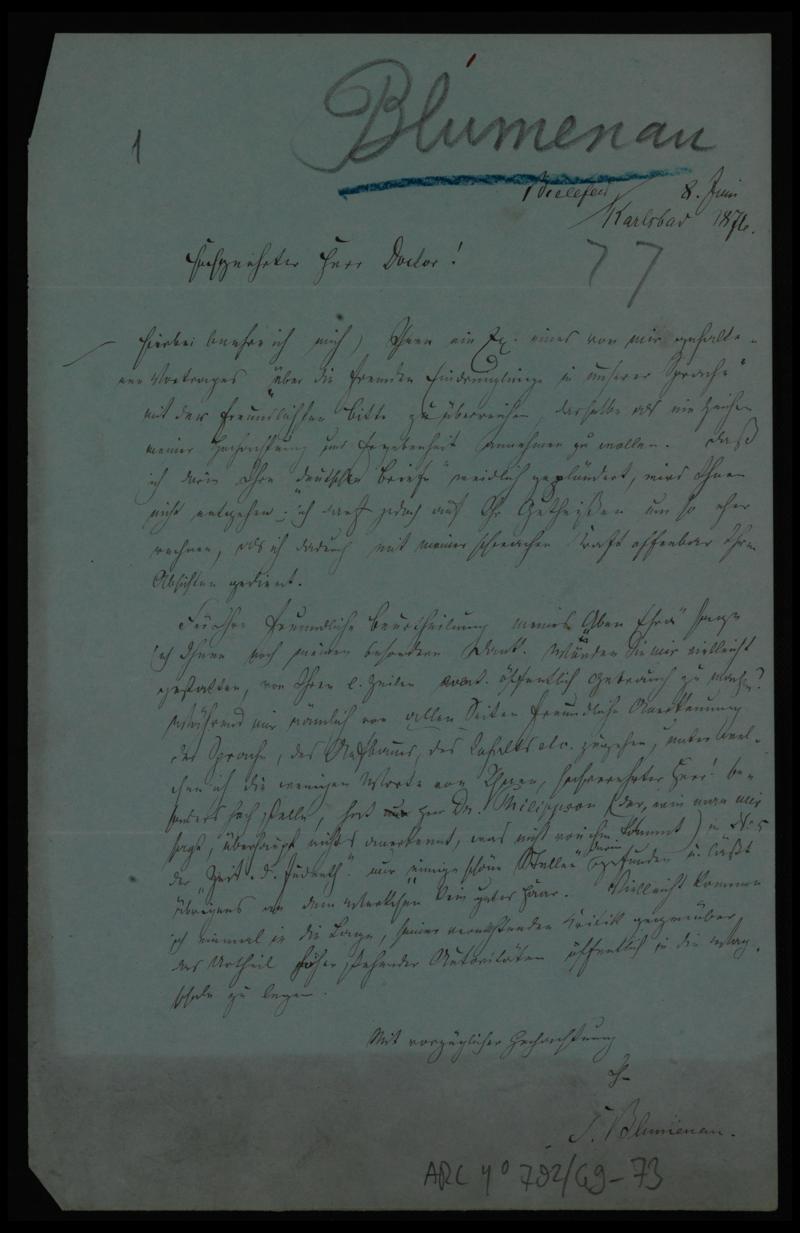 Blumenau
1
Bielefeld 8. Juni
Karlsbad 1876.
77
Hochgeehrter Herr Doctor!
Hierbei beehre ich mich, Ihnen ein Ex. eines von mir gehalte-
nen Vortrages "über die fremden Eindringlinge in unserer Sprache"
mit der freundlichsten Bitte zu überreichen, dasselbe als ein Zeichen
meiner Hochachtung und Ergebenheit annehmen zu wollen. Daß
ich darin Ihre "deutschen Briefe" weidlich geplündert, wird Ihnen
nicht entgehen; ich darf jedoch auf Ihr Gutheißen um so eher
rechnen, als ich dadurch mit meiner schwachen Kraft offenbar Ihren
Absichten gedient.
Für Ihre freundliche Beurtheilung meines "Aben Esra" sage
ich Ihnen noch meinen besondern Dank. Würden Sie mir vielleicht
gestatten, von Ihren l. Zeilen öffentlich Gebrauch zu machen?
Während mir nämlich von allen Seiten freundliche Anerkennung
der Sprache, des Aufbaues, des Inhalts etc. zugehen, unter wel-
chen ich die wenigen Worte von Ihnen, hochverehrter Herr! be-
sonders hoch stelle, hat Herr Dr. Philippson (der, wie man mir
sagt, überhaupt nichts anerkennt, was nicht von ihm kommt) in
der "Zeit. d. Judenth." nur "einige schöne Stellen" darin gefunden u. läßt
übrigens an dem Werkchen kein gutes Haar. Vielleicht komme
ich einmal in die Lage, seiner vernichtenden Kritik gegenüber,
das Urtheil höher stehender Autoritäten öffentlich in die Wag-
schale zu legen.
Mit vorzüglicher Hochachtung
Ihr
S. Blumenau.
ARC 4° 792/G9-73